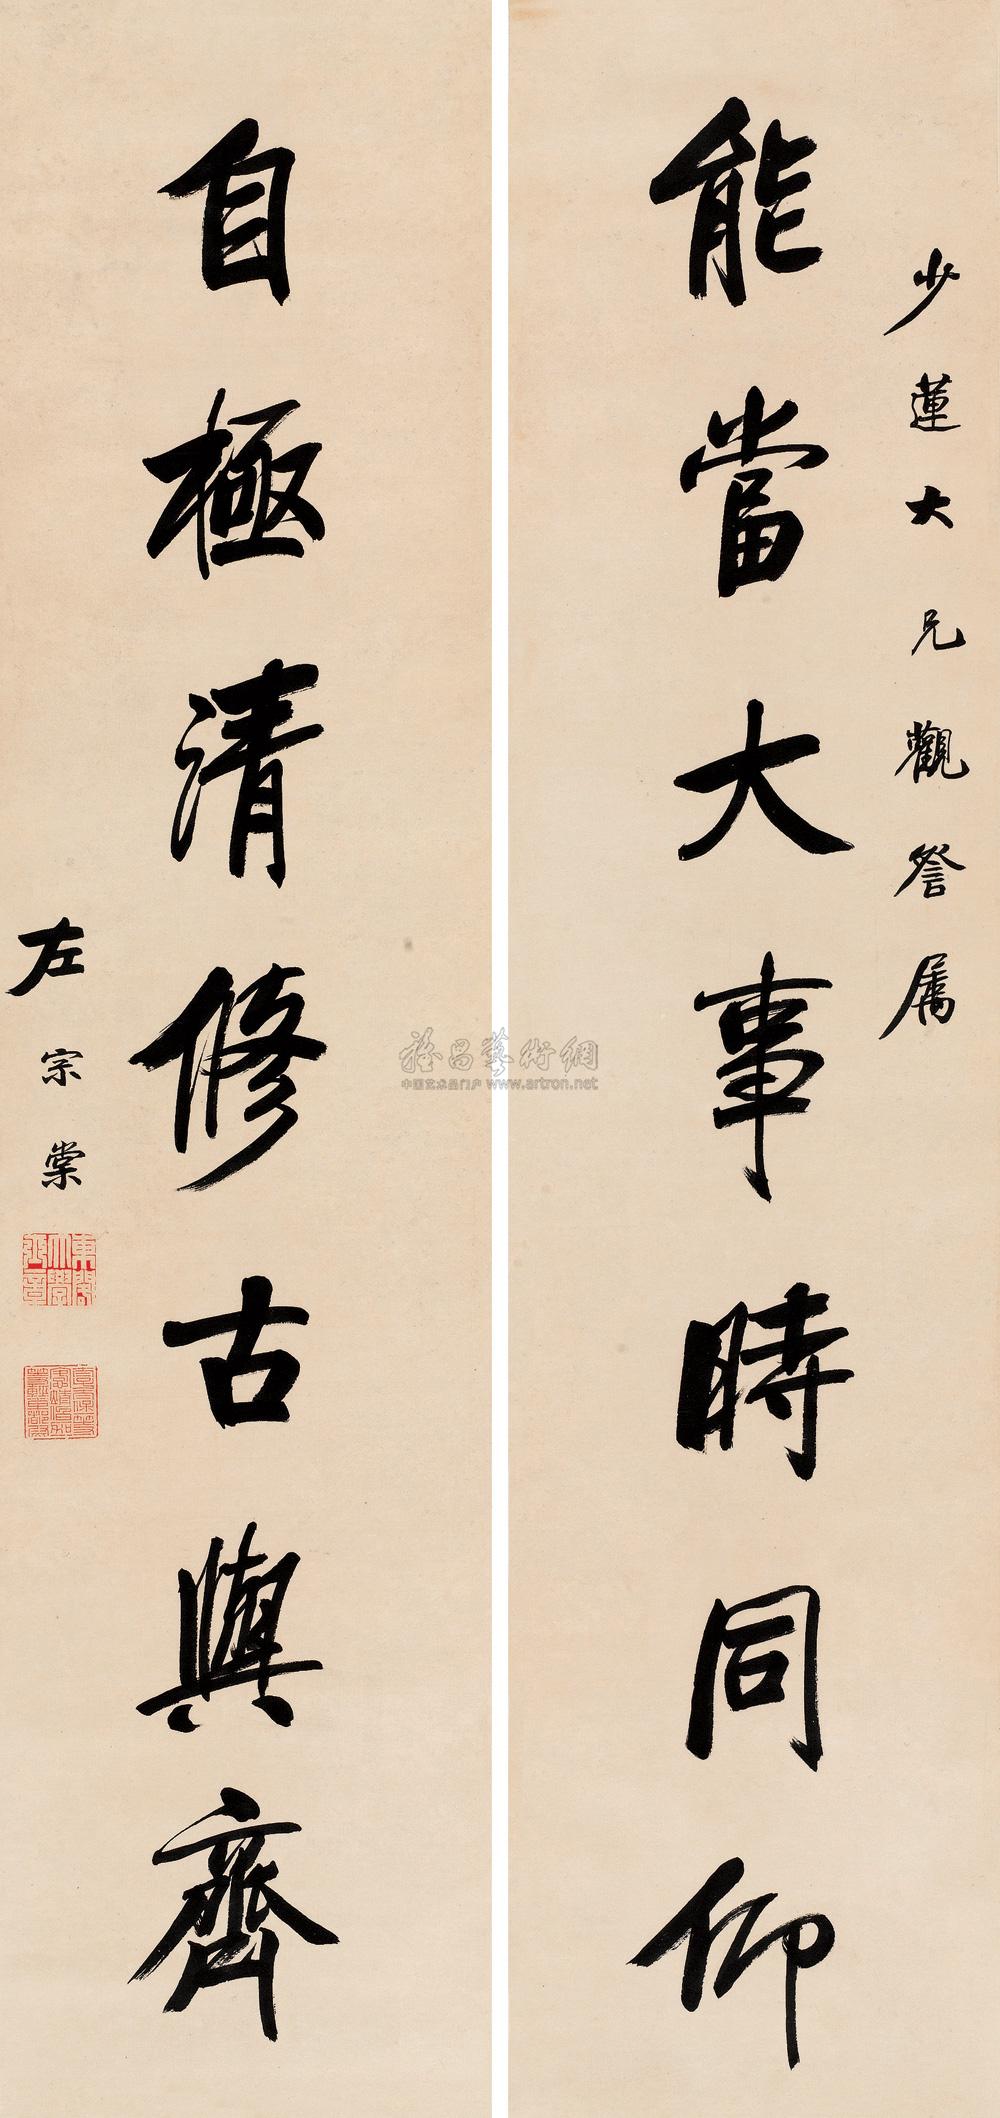 少蓮大兄觀詧属
能當大事時同仰
自極清修古與齊
左宗棠
東閣大學士章
雅昌藝術網
中国艺术品门户 www.artron.net